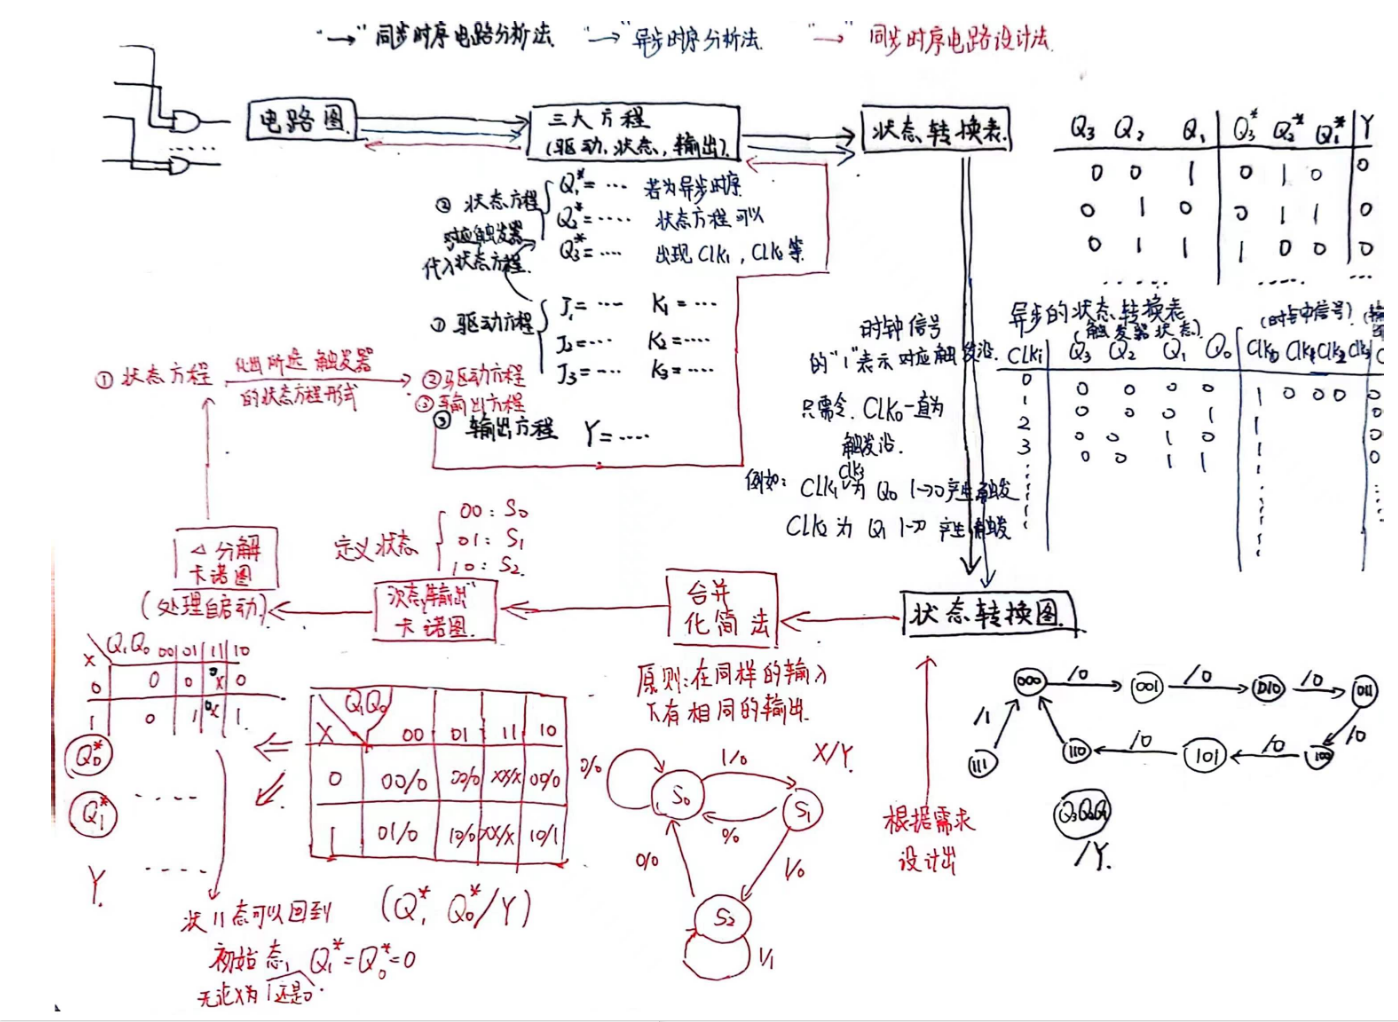 “→” 同步时序电路分析法. “→” 异步时序分析法. “→” 同步时序电路设计法.
电路图.
三大方程
(驱动,状态,输出).
状态转换表.
Q3 Q2 Q1 Q3* Q2* Q1* Y
0 0 1 0 1 0 0
0 1 0 0 1 1 0
0 1 1 1 0 0 0
② 状态方程
对应触发器
代入状态方程.
Q1*= ··· 若为异步时序
Q2*= ···· 状态方程可以
Q3*= ···· 出现 Clk1, Clk2等.
① 驱动方程
J1= ··· K1= ···
J2= ···· K2= ···
J3= ···· K3= ····
③ 输出方程 Y= ····
① 状态方程
化出所选触发器
的状态方程形式
②驱动方程
③输出方程
时钟信号
的“1”表示对应触发沿.
只需令. CLK0一直为
触发沿.
例如: Clk1 Clk3 为 Q0 1→0产生触发
Clk2 为 Q1 1→0 产生触发
异步的状态转换表
(触发器状态) (时钟信号)
CLKi Q3 Q2 Q1 Q0 Clk0 Clk1 Clk2 Clk3
0 0 0 0 0 1 0 0 0 0
1 0 0 0 1 1 0
2 0 0 1 0 1 0
3 0 0 1 1 1 0
状态转换图.
合并
化简法
原则:在同样的输入
下有相同的输出.
定义状态
00: S0
01: S1
10: S2.
次态,输出
卡诺图.
△分解
卡诺图
(处理自启动)
X Q1Q0 00 01 11 10
0 0 0 x 0 0
1 0 1 x 0 1
Q0*
Q1* ····
Y. ····
X Q1Q0 00 01 11 10
0 00/0 00/0 XX/X 00/0
1 01/0 10/0 XX/X 10/1
(Q1* Q0*/Y)
状11态可以回到
初始态, Q1*=Q0*=0
无论X为1还是0.
X/Y.
0/0 S0 1/0 S1
0/0 0/0 1/0
S2
1/1
根据需求
设计出
000 /0 001 /0 010 /0 011
/1 /0
111 110 /0 101 /0 100
Q3Q2Q1
/Y.